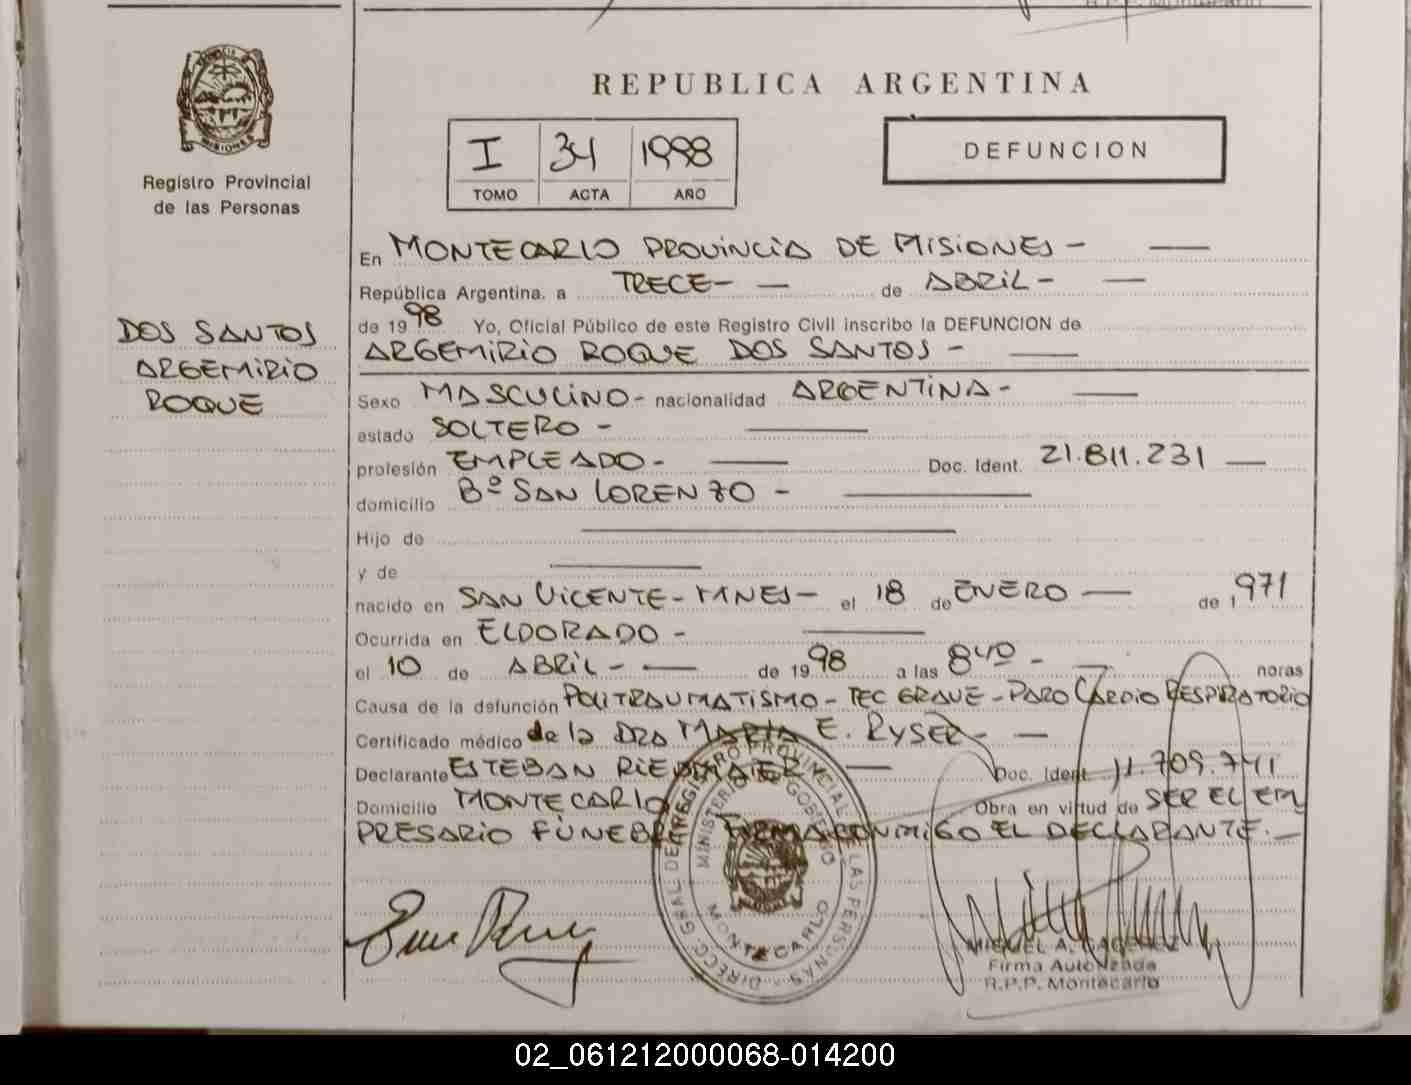 REPUBLICA ARGENTINA
MISIONES
Registro Provincial
de las Personas
I 34 1998
TOMO ACTA AÑO
DEFUNCION
DOS SANTOS
ARGEMIRIO
ROQUE
En MONTECARLO PROVINCIA DE MISIONES -
República Argentina, a TRECE- de ABRIL -
de 1998 Yo, Oficial Público de este Registro Civil inscribo la DEFUNCION de
ARGEMIRIO ROQUE DOS SANTOS -
Sexo MASCULINO - nacionalidad ARGENTINA -
estado SOLTERO -
profesión EMPLEADO - Doc. Ident. 21.811.231
domicilio Bº SAN LORENZO -
Hijo de
y de
nacido en SAN VICENTE - MNES - el 18 de ENERO de 1971
Ocurrida en ELDORADO -
el 10 de ABRIL - de 1998 a las 8 40 - horas
Causa de la defunción POLITRAUMATISMO - TEC GRAVE - PARO CARDIO RESPIRATORIO
Certificado médico de la DRA MARIA E. RYSER -
Declarante ESTEBAN Doc. Ident. 11.709.741
Domicilio MONTECARLO Obra en virtud de SER EL EM
PRESARIO FÚNEBRE EL DECLARANTE. -
DIRECC. GRAL. DEL REGISTRO PROVINCIAL DE LAS PERSONAS
MINISTERIO DE GOBIERNO
MONTECARLO
MIGUEL A.
Firma Autorizada
R.P.P. Montecarlo
02_061212000068-014200